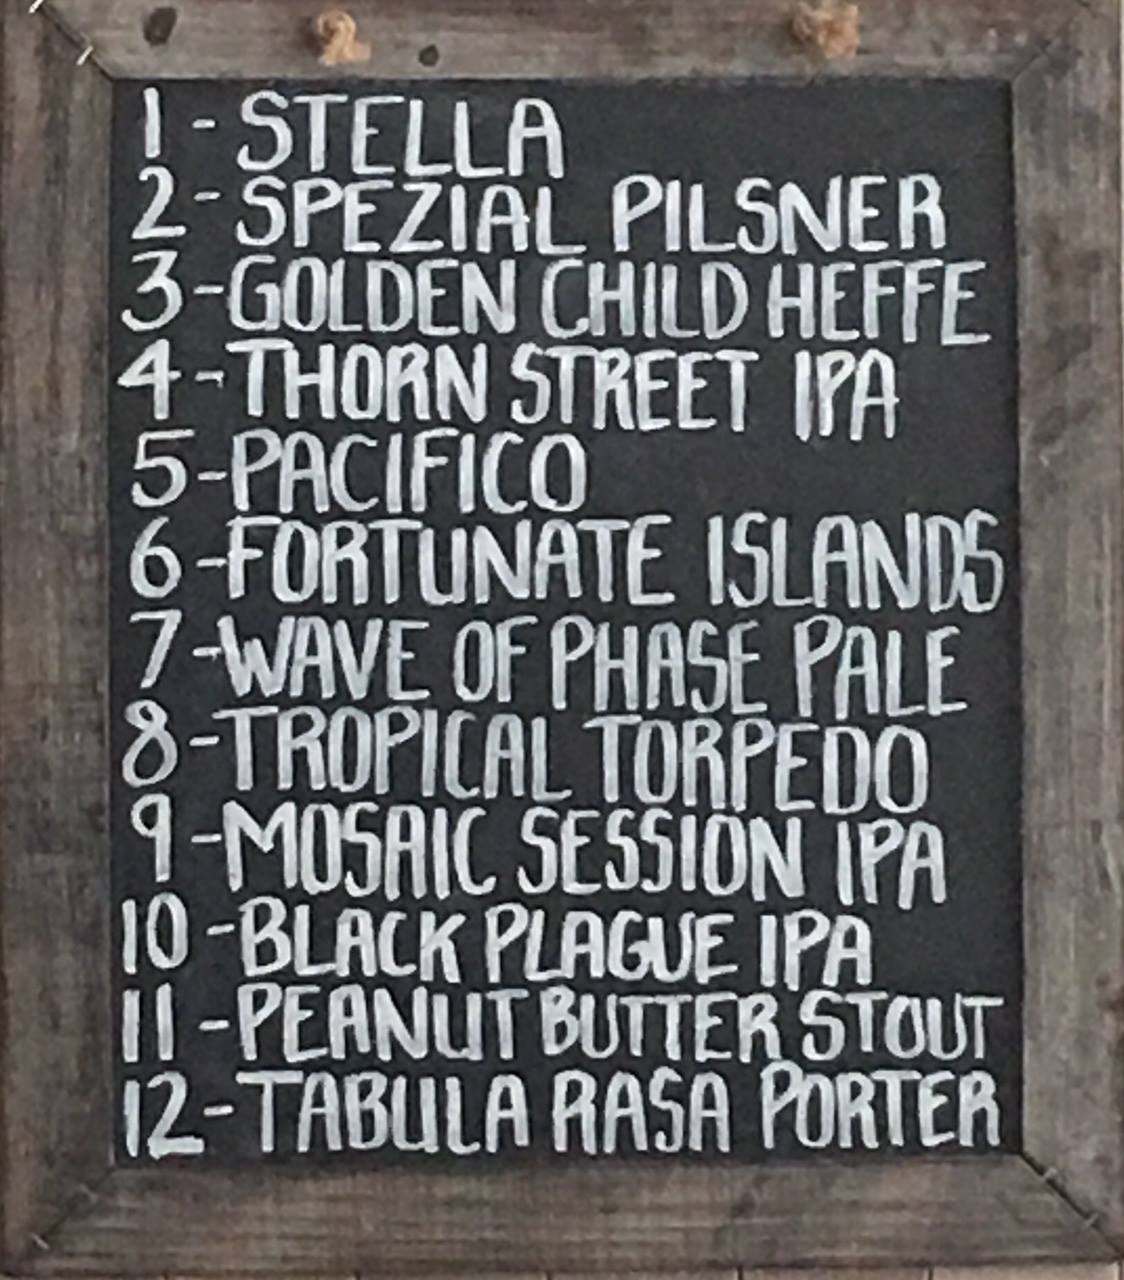 1 - STELLA
2 - SPEZIAL PILSNER
3 - GOLDEN CHILD HEFFE
4 - THORN STREET IPA
5 - PACIFICO
6 - FORTUNATE ISLANDS
7 - WAVE OF PHASE PALE
8 - TROPICAL TORPEDO
9 - MOSAIC SESSION IPA
10 - BLACK PLAGUE IPA
11 - PEANUT BUTTER STOUT
12 - TABULA RASA PORTER